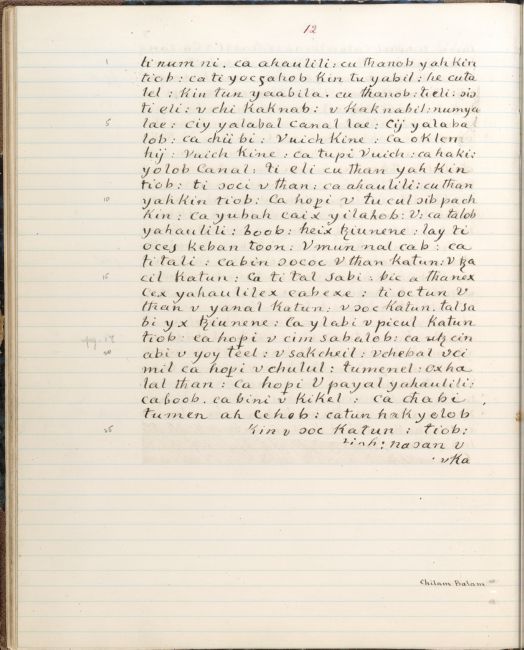 12
1 ti num ni. ca ahaulili: cu thanob yah kin
tiob: ca ti yocçahob kin tu yabil: he cuta
lel: kin tun yaabila. cu thanob: ti eli: sis
ti eli: v chi kaknab: v kaknabil: numya
5 lae: ciy yalabal canal lae: Cij yalaba
lob: ca chii bi: Vuich kine: ca oklem
hij: Vuich kine: ca tupi Vuich: ca haki:
yolob canal: ti eli cu than yah kin
tiob: ti ɔoci v than: ca ahaulili: cu than
10 yah kin tiob: Ca hopi v tu cul ɔib pach
kin: ca yubah caix yilahob: V: ca talob
yahaulili: boob: heix tziunene: lay ti
oces keban toon: V mun nal cab: ca
ti tali: ca bin ɔococ V than katun: V tza
15 cil katun: Ca ti tal sabi: bic a thanex
Cex yahaulilex cabexe: ti oc tun v
than v yanal katun: v ɔoc katun. tal sa
bi yx tziunene: Ca ylabi v picul katun
tiob: ca hopi v cim sabalob: ca utz cin
20 abi v yoy teel: v sakcheil: v chebal v ci
mil ca hopi v chulul: tumenel: oxha
lal than: Ca hopi V payal yahaulili:
ca boob. ca bini v kikel: ca chabi
tumen ah Cehob: catun hak yolob
25 kin v ɔoc katun: tiob:
tiob: naɔan v
v ka
Chilam Balam